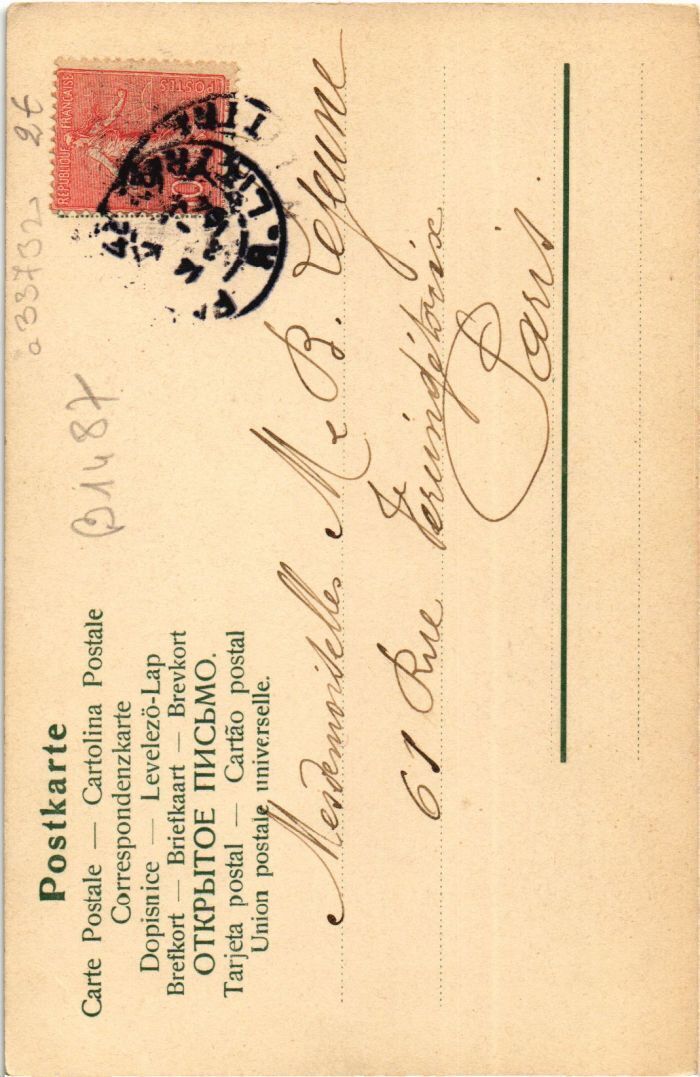 Postkarte
Carte Postale — Cartolina Postale
Correspondenzkarte
Dopisnice — Levelező-Lap
Brefkort — Briefkaart — Brevkort
ОТКРЫТОЕ ПИСЬМО.
Tarjeta postal — Cartão postal
Union postale universelle.
B1487
a33732 2€
RÉPUBLIQUE FRANÇAISE
POSTES
Mesdemoiselles M et B. Lejeune
61 Rue Vercingétorix
Paris.